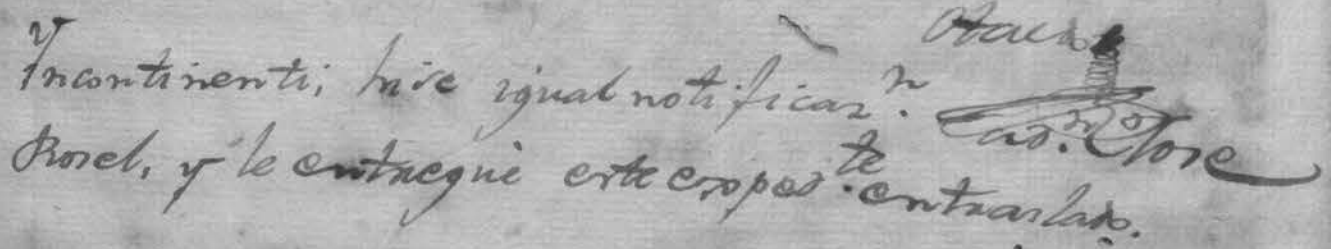 Incontinenti, hice igual notificazn. ad.n Jose
Rosel, y le entregué este expedte. entraslado.